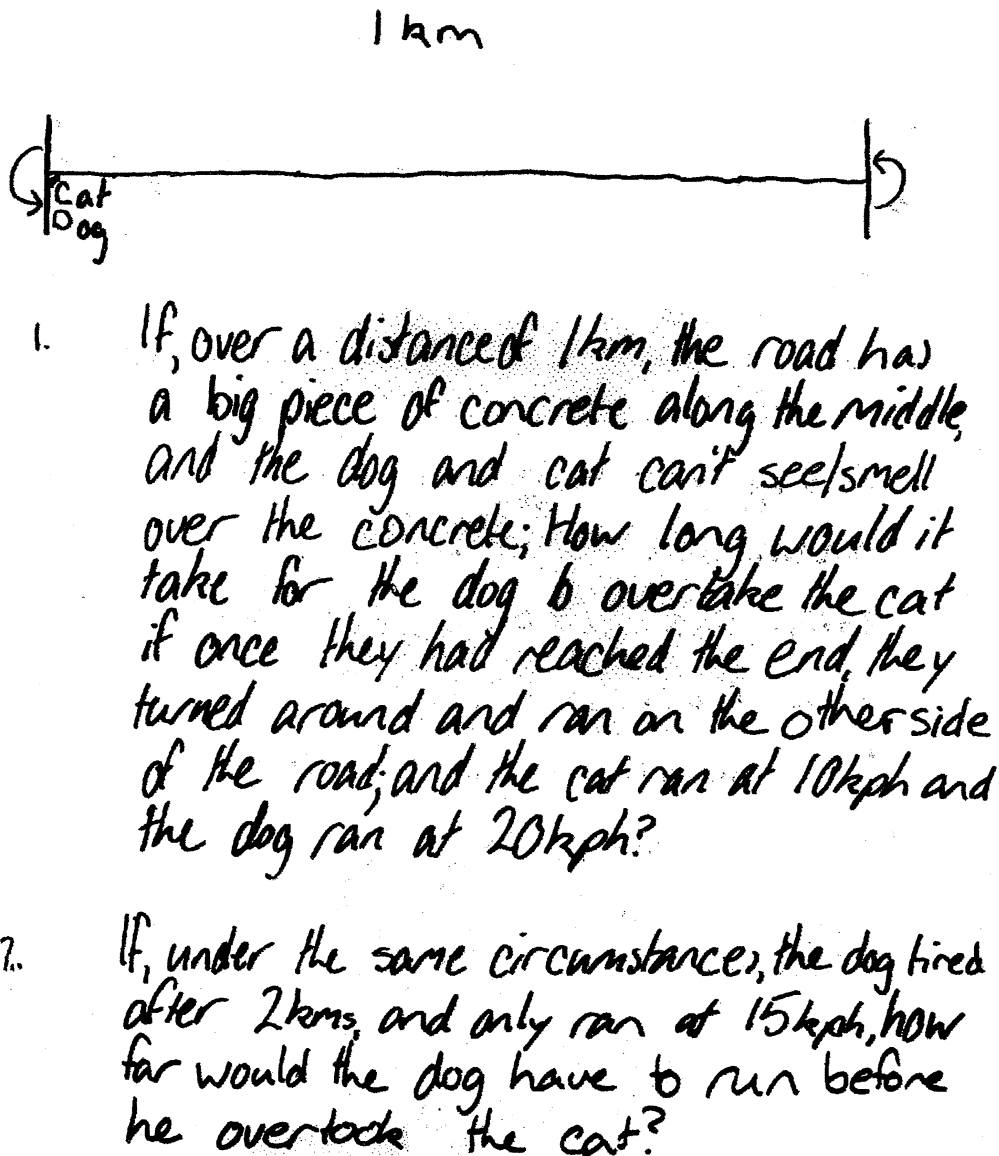 1 km
Cat
Dog
1. If, over a distance of 1km, the road has
a big piece of concrete along the middle,
and the dog and cat can't see/smell
over the concrete; How long would it
take for the dog to overtake the cat
if once they had reached the end, they
turned around and ran on the other side
of the road; and the cat ran at 10kph and
the dog ran at 20kph?
2. If, under the same circumstances, the dog tired
after 2kms, and only ran at 15kph, how
far would the dog have to run before
he overtook the cat?